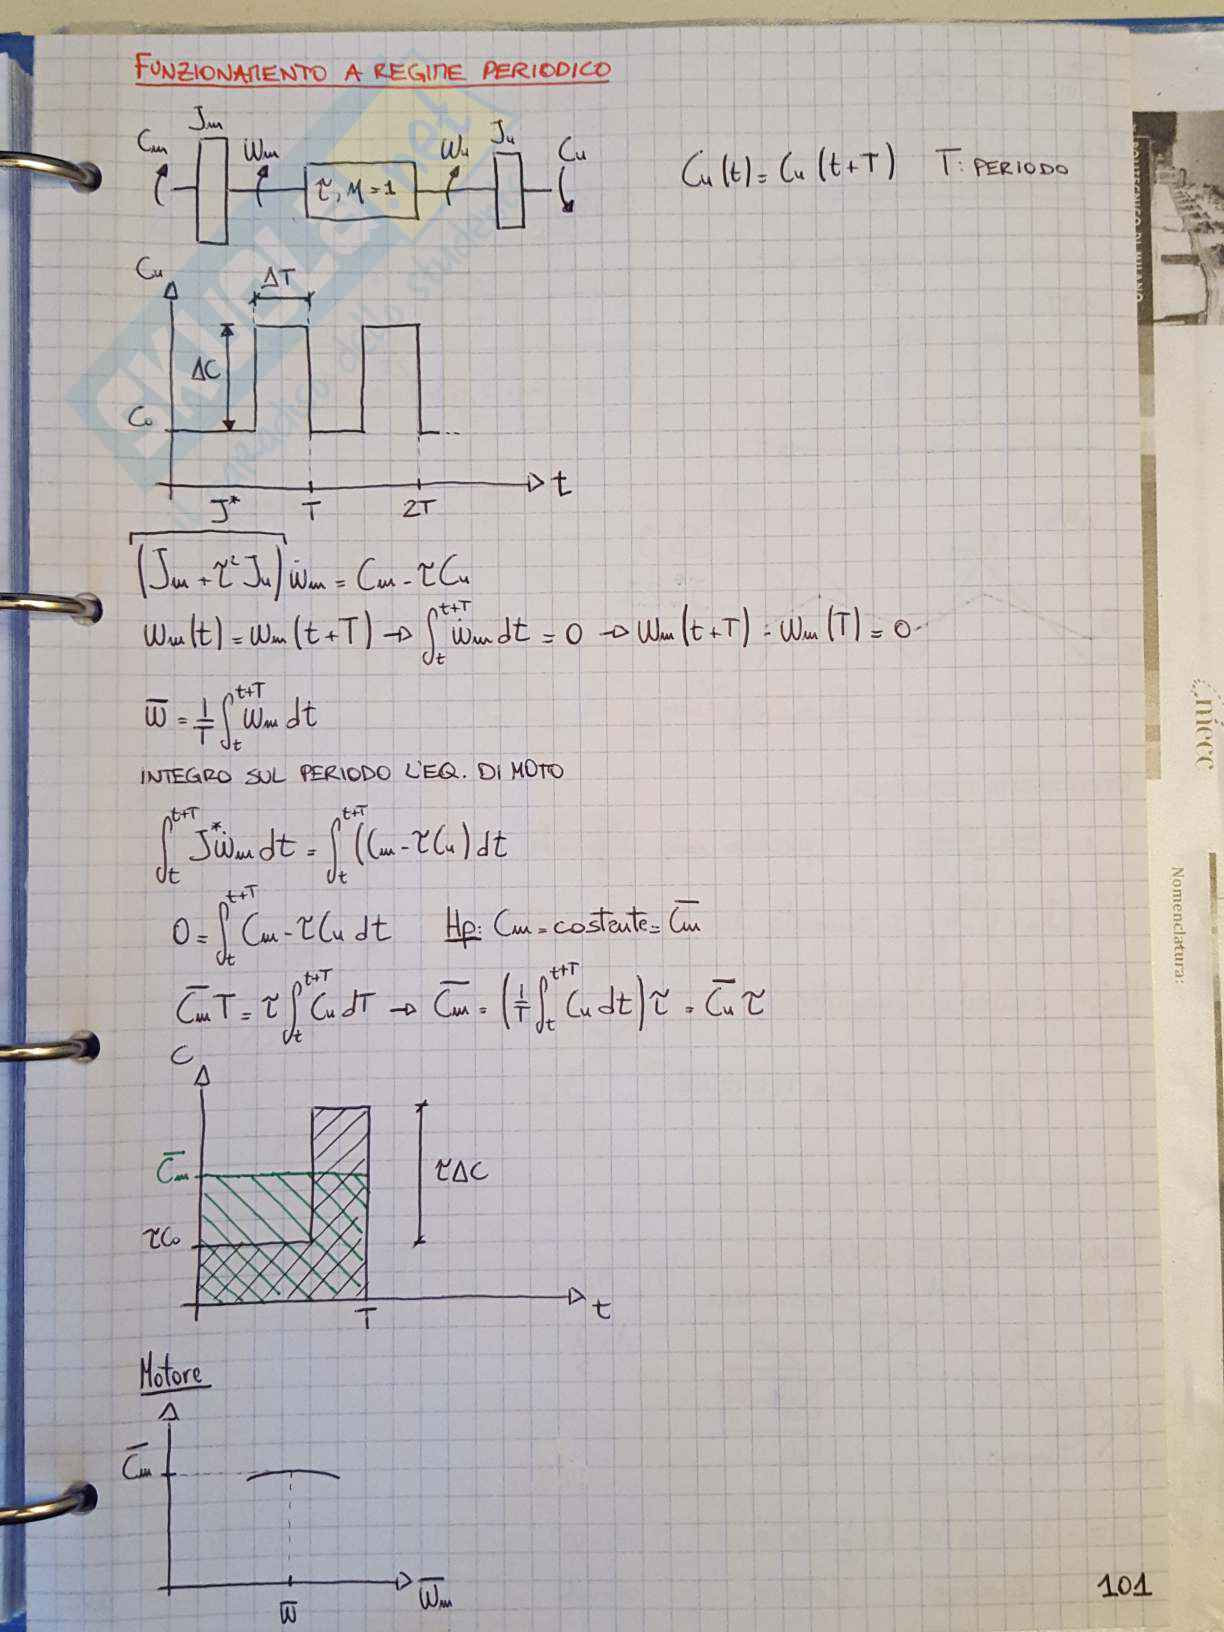 FUNZIONAMENTO A REGIME PERIODICO
Cm Jm ωm τ, η=1 ωu Ju Cu
Cu(t) = Cu(t+T) T: PERIODO
Cu
ΔT
ΔC
C₀
J* T 2T t
(Jm + τ²Ju) ω̇m = Cm - τCu
ωm(t) = ωm(t+T) → ∫ₜᵗ⁺ᵀ ω̇m dt = 0 → ωm(t+T) - ωm(T) = 0
ω̄ = 1/T ∫ₜᵗ⁺ᵀ ωm dt
INTEGRO SUL PERIODO L'EQ. DI MOTO
∫ₜᵗ⁺ᵀ J*ω̇m dt = ∫ₜᵗ⁺ᵀ (Cm - τCu) dt
0 = ∫ₜᵗ⁺ᵀ Cm - τCu dt Hp: Cm = costante = C̄m
C̄m T = τ ∫ₜᵗ⁺ᵀ Cu dT → C̄m = (1/T ∫ₜᵗ⁺ᵀ Cu dt) τ = C̄u τ
C
C̄m
τΔC
τC₀
T t
Motore
C̄m
ω̄ ω̄m
101
Nomenclatura:
SKUOLA.net